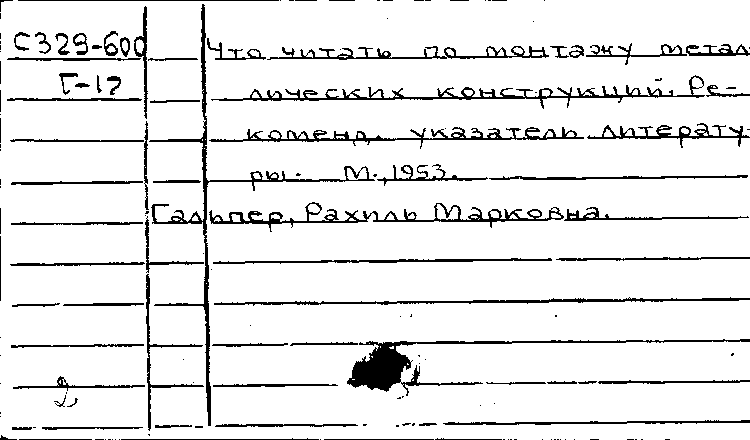 С329-600 Что читать по монтажу метал
Г-17 лических конструкций. Ре-
коменд. указатель литерату-
ры. М., 1953.
Гальпер, Рахиль Марковна.
2